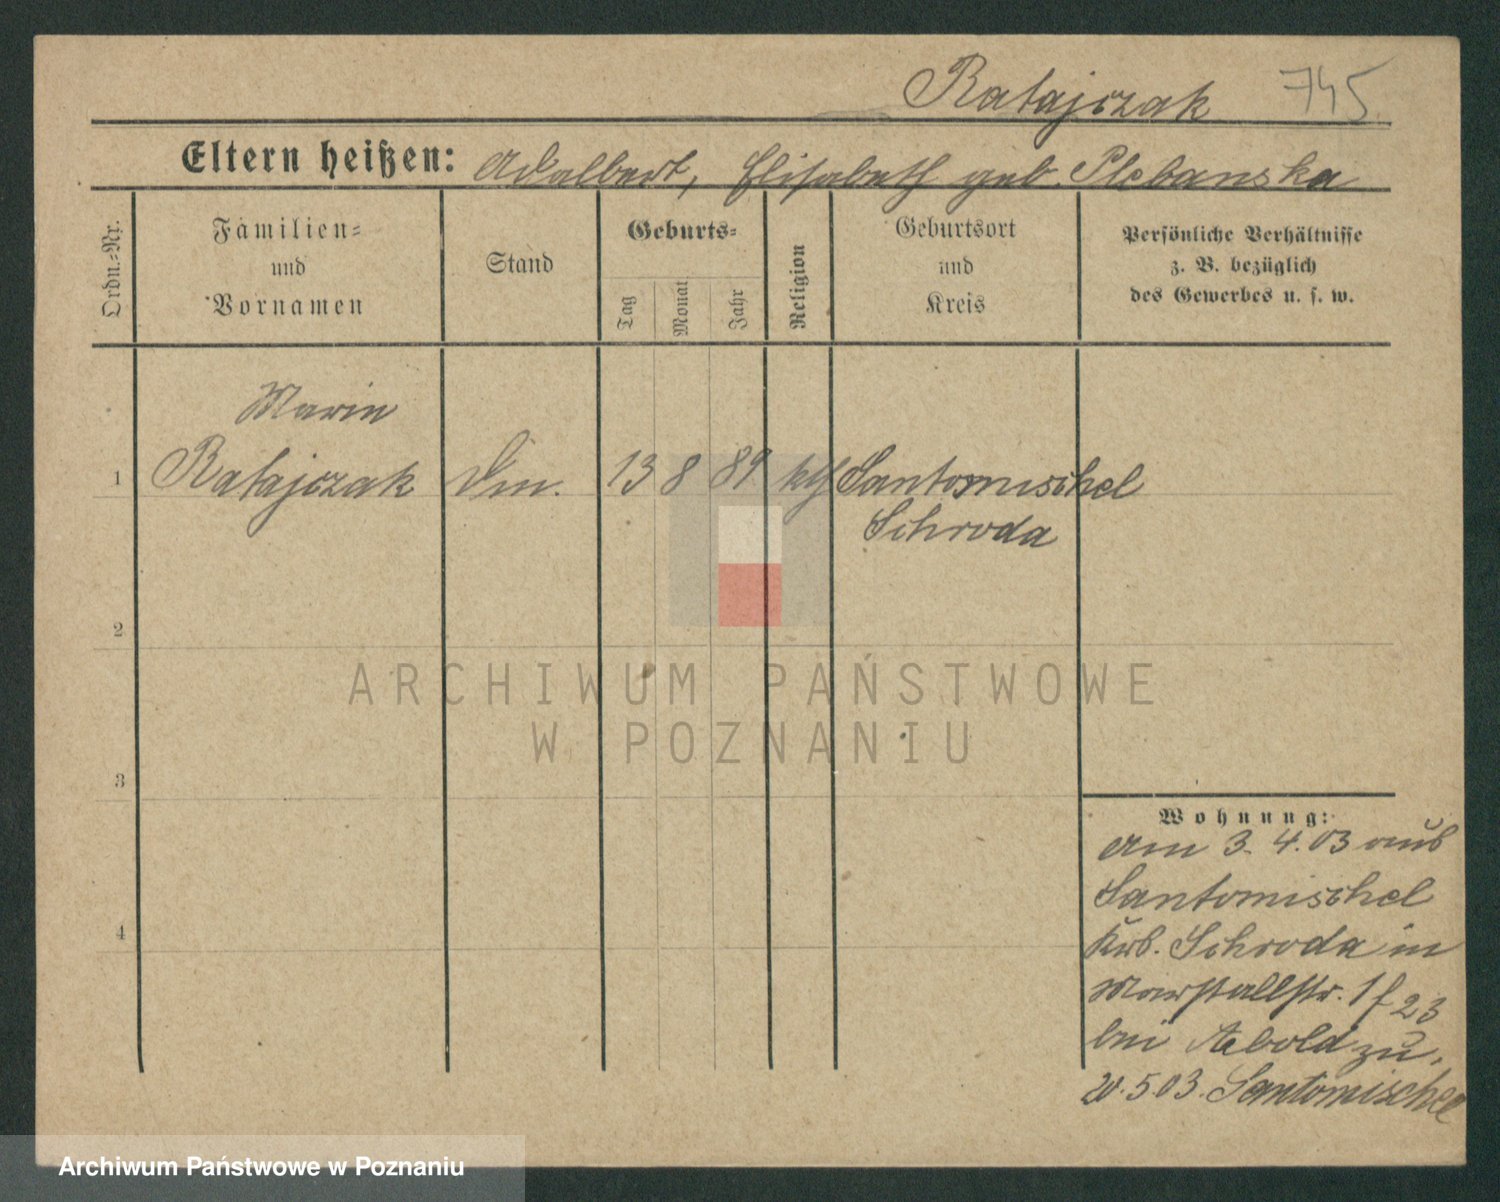 Ratajczak 745
Eltern heißen: Adalbert, Elisabeth geb. Plebanska
Ordn.-Nr.
Familien-
und
Vornamen
Stand
Geburts-
Tag
Monat
Jahr
Religion
Geburtsort
und
Kreis
Persönliche Verhältnisse
z. B. bezüglich
des Gewerbes u. s. w.
Marie
1 Ratajczak 13 8 89 kth Santomischel
Schroda
2
3
4
ARCHIWUM PAŃSTWOWE
W POZNANIU
Wohnung:
Am 3. 4. 03 aus
Santomischel
Krs. Schroda in
Marstallstr. 1 f 23
bei zu.
20.5.03. Santomischel
Archiwum Państwowe w Poznaniu